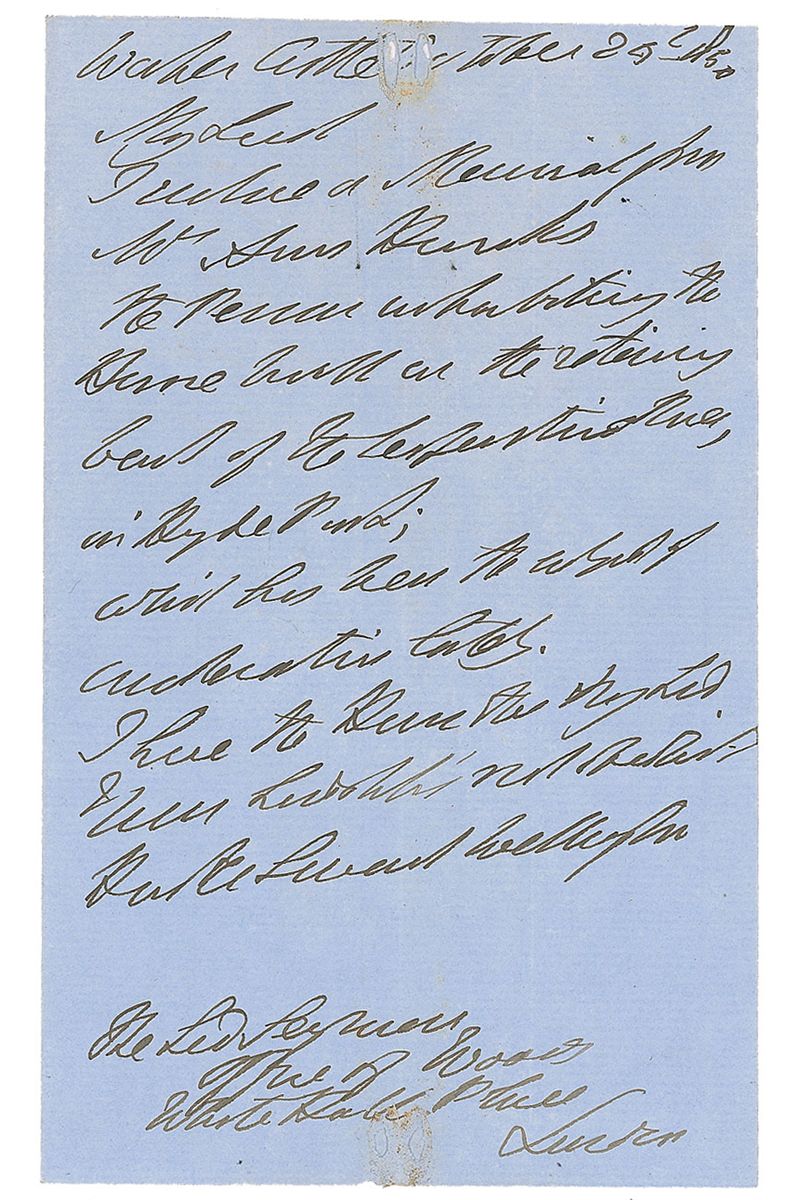 Walmer Castle October 25th 1850
My Lord
I inclose a Memorial from
Mrs Ann Hicks
the Person inhabiting the
House built on the retaining
bank of the Serpentine River,
in Hyde Park;
which has been the subject of
lately.
I have the Honor to be My Lord
Your Lordship's most obedient
Humble Servant Wellington
The Lord Seymour
Office of Woods
White Hall Place
London